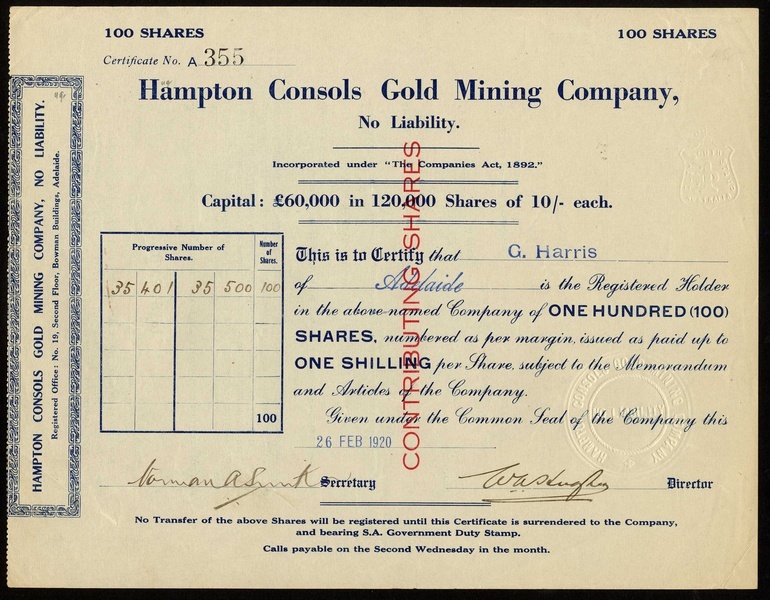 100 SHARES
100 SHARES
Certificate No. A 355
Hampton Consols Gold Mining Company,
No Liability.
Incorporated under "The Companies Act, 1892."
Capital: £60,000 in 120,000 Shares of 10/- each.
CONTRIBUTING SHARES
HAMPTON CONSOLS GOLD MINING COMPANY, NO LIABILITY.
Registered Office: No. 19, Second Floor, Bowman Buildings, Adelaide.
Progressive Number of Shares.
Number of Shares.
35 401 35 500 100
100
This is to Certify that G. Harris
of Adelaide is the Registered Holder
in the above-named Company of ONE HUNDRED (100)
SHARES, numbered as per margin, issued as paid up to
ONE SHILLING per Share, subject to the Memorandum
and Articles of the Company.
Given under the Common Seal of the Company this
26 FEB 1920
Norman A Secretary
Director
No Transfer of the above Shares will be registered until this Certificate is surrendered to the Company,
and bearing S.A. Government Duty Stamp.
Calls payable on the Second Wednesday in the month.